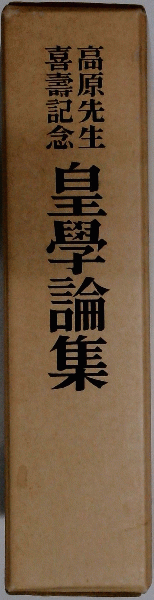 高原先生
喜壽記念
皇學論集